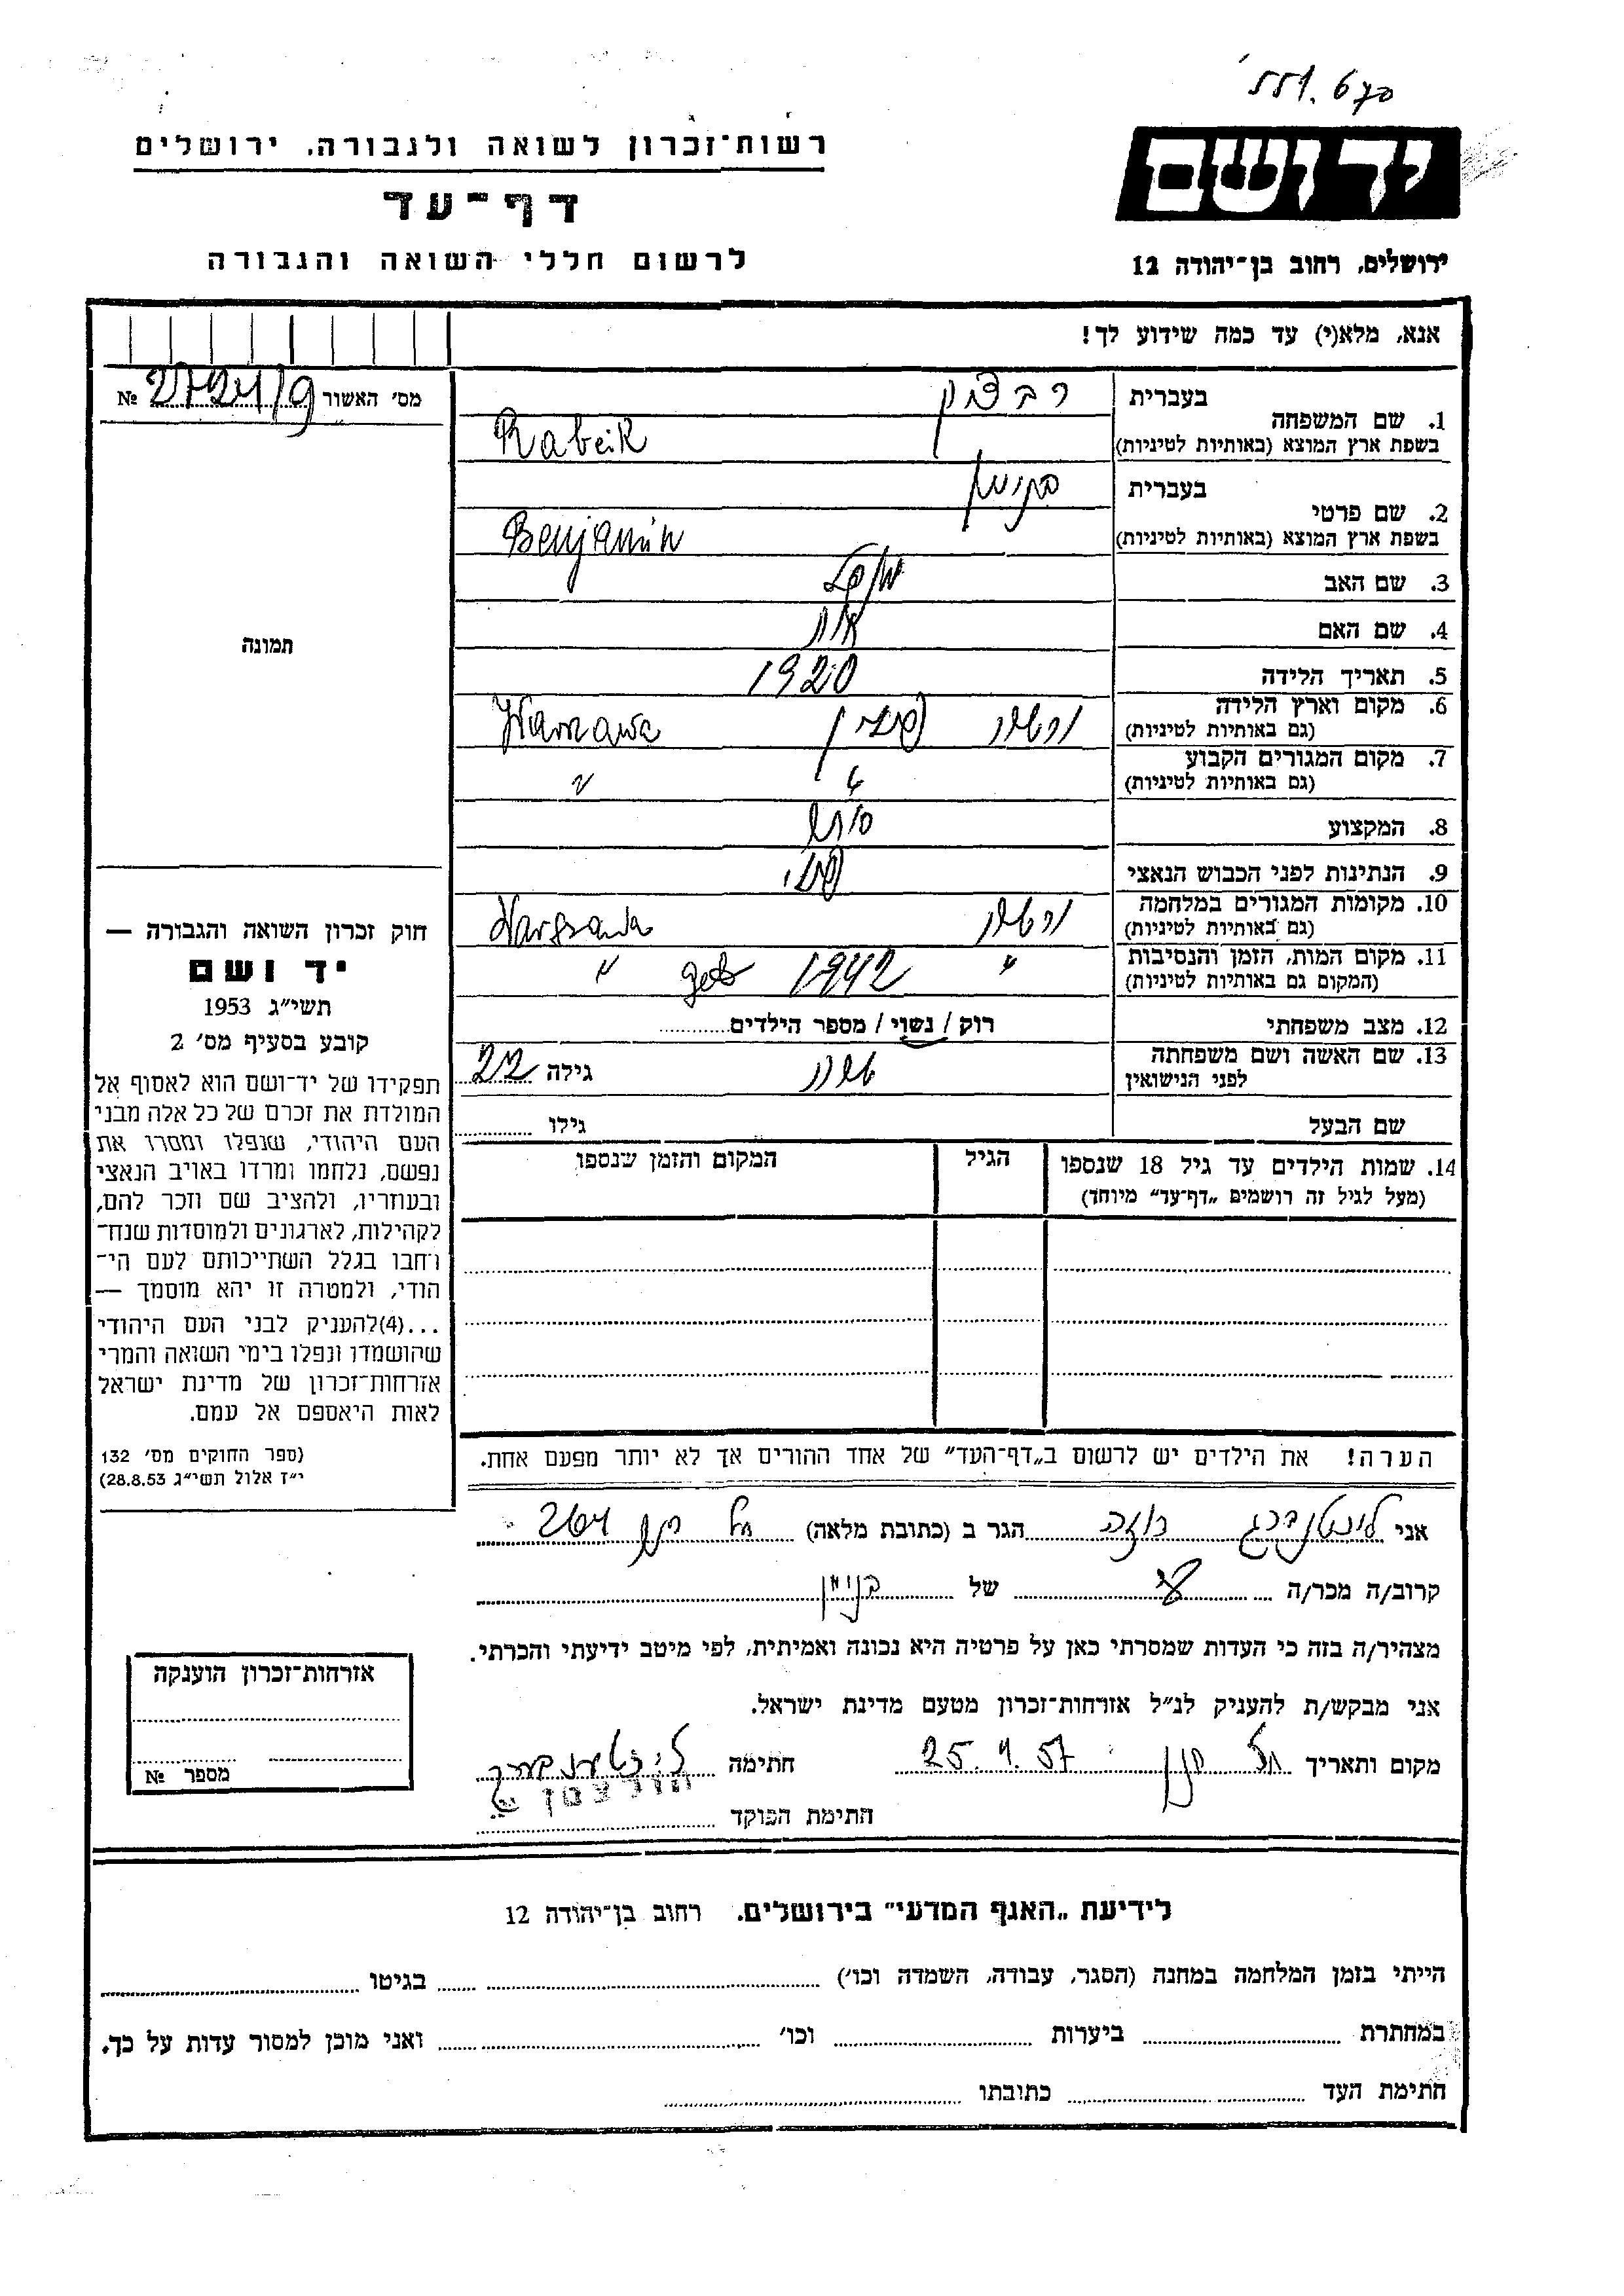 רשות־זכרון לשואה ולגבורה, ירושלים
דף־עד
לרשום חללי השואה והגבורה
יד ושם
ירושלים, רחוב בן־יהודה 12
אנא, מלא(י) עד כמה שידוע לך!
מס׳ האשור № 2724/9
1. שם המשפחה
בעברית
בשפת ארץ המוצא (באותיות לטיניות) Rabeik
2. שם פרטי
בעברית
בשפת ארץ המוצא (באותיות לטיניות) Benjamin
3. שם האב
4. שם האם
5. תאריך הלידה 1920
6. מקום וארץ הלידה ורשה פולין Warszawa
(גם באותיות לטיניות)
7. מקום המגורים הקבוע " "
(גם באותיות לטיניות)
8. המקצוע סוחר
9. הנתינות לפני הכבוש הנאצי פולני
10. מקומות המגורים במלחמה ורשה Warszawa
(גם באותיות לטיניות)
11. מקום המות, הזמן והנסיבות " 1942 geto "
(המקום גם באותיות לטיניות)
12. מצב משפחתי רוק / נשוי / מספר הילדים
13. שם האשה ושם משפחתה
לפני הנישואין
גילה 22
שם הבעל גילו
14. שמות הילדים עד גיל 18 שנספו
(מעל לגיל זה רושמים „דף־עד״ מיוחד)
הגיל
המקום והזמן שנספו
הערה! את הילדים יש לרשום ב„דף־העד״ של אחד ההורים אך לא יותר מפעם אחת.
תמונה
חוק זכרון השואה והגבורה —
יד ושם
תשי״ג 1953
קובע בסעיף מס׳ 2
תפקידו של יד־ושם הוא לאסוף אל
המולדת את זכרם של כל אלה מבני
העם היהודי, שנפלו ומסרו את
נפשם, נלחמו ומרדו באויב הנאצי
ובעוזריו, ולהציב שם וזכר להם,
לקהילות, לארגונים ולמוסדות שנח־
רבו בגלל השתייכותם לעם הי־
הודי, ולמטרה זו יהא מוסמך —
...(4)להעניק לבני העם היהודי
שהושמדו ונפלו בימי השואה והמרי
אזרחות־זכרון של מדינת ישראל
לאות היאספם אל עמם.
(ספר החוקים מס׳ 132
י״ז אלול תשי״ג 28.8.53)
אני ליכטנברג רוזה הגר ב (כתובת מלאה) תל חנן 264
קרוב/ה מכר/ה של בנימין
מצהיר/ה בזה כי העדות שמסרתי כאן על פרטיה היא נכונה ואמיתית, לפי מיטב ידיעתי והכרתי.
אני מבקש/ת להעניק לנ״ל אזרחות־זכרון מטעם מדינת ישראל.
מקום ותאריך תל חנן 25.4.57 חתימה ליכטענבערג
חתימת הפוקד
אזרחות־זכרון הוענקה
מספר №
לידיעת „האגף המדעי״ בירושלים, רחוב בן־יהודה 12
הייתי בזמן המלחמה במחנה (הסגר, עבודה, השמדה וכו׳) בגיטו
במחתרת ביערות וכו׳ ואני מוכן למסור עדות על כך.
חתימת העד כתובתו